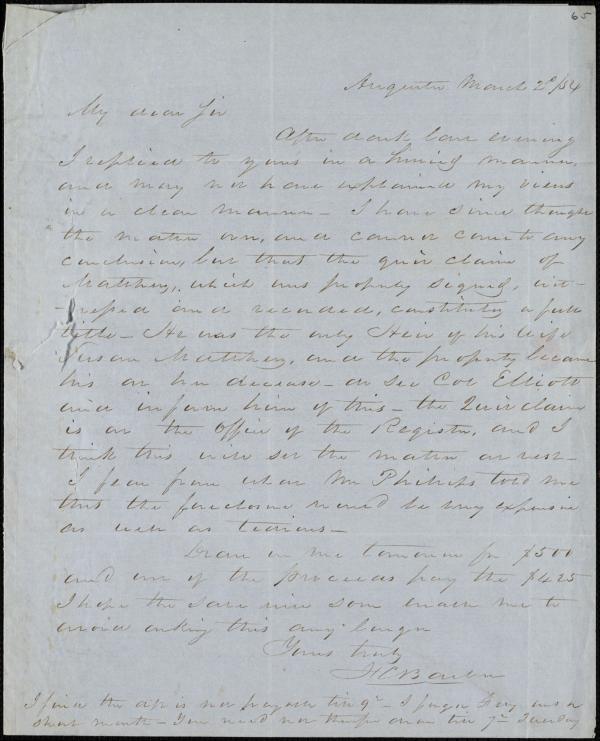 65
Augusta March 2d/54
My dear Sir
After dark last evening
I replied to yours in a hurried manner,
and may not have explained my views
in a clear manner - I have since thought
the matter over, and cannot come to any
conclusion, but that the quit claim of
Matthey, which was properly signed, wit-
-nessed and recorded, constitutes a full
title - He was the only Heir of his wife
Susan Matthey, and the property became
his on her decease - do see Col Elliott
and inform him of this - the Quit claim
is at the Office of the Register, and I
think this will set the matter at rest -
I fear from what Mr Philips told me
that the foreclosure would be very expensive
as well as tedious -
Draw on me tomorrow for $500
and out of the proceeds pay the $425
I hope the sale will soon enable me to
avoid asking this any longer
Yours truly
I find the is not payable till 9th - I forgot Feby was a
short month - You need not therefore draw till 7th Tuesday